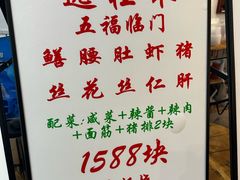 五福临门
鳝腰肚虾猪
丝花丝仁肝
配菜:咸菜+辣酱+辣肉
+面筋+猪排2块
1588块